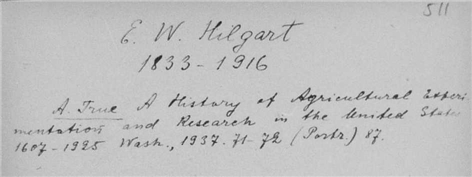 511
E. W. Hilgart
1833 - 1916
A. True A History of Agricultural Experi-
mentation and Research in the United States
1607 - 1925 Wash., 1937. 71-72 (Portr.) 87.